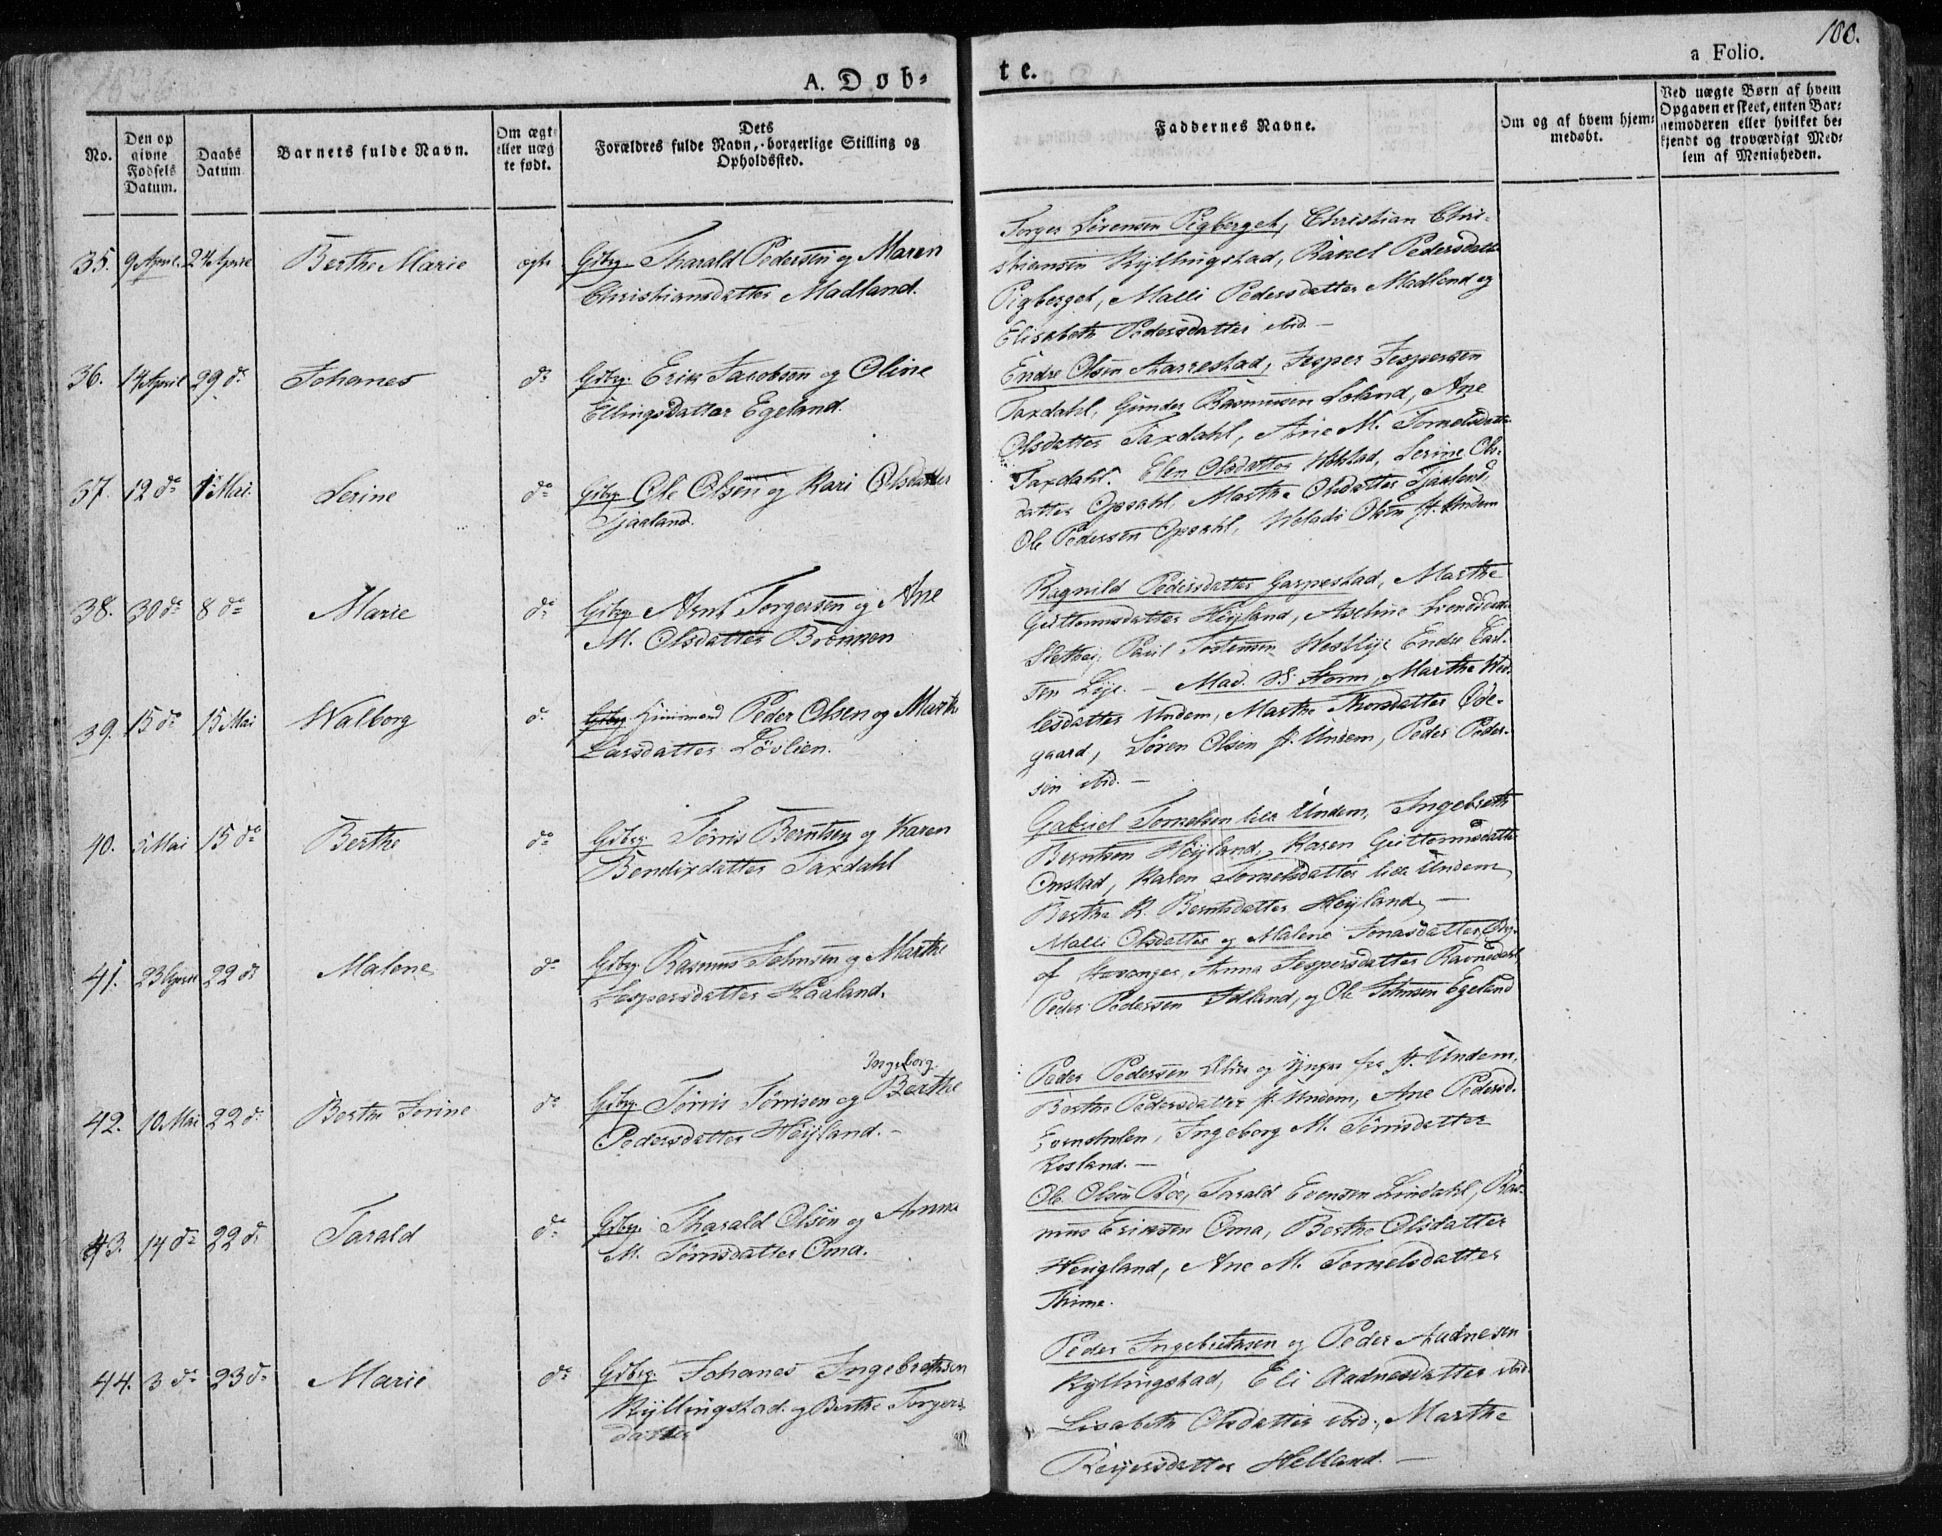 1836
A. Døb=
te.
a Folio.
100.
No.
Den op
givne
Fødsels
Datum.
Daabs
Datum
Barnets fulde Navn.
Om ægte
eller uæg
te født.
Dets
Forældres fulde Navn, borgerlige Stilling og
Opholdssted.
Faddernes Navne.
Om og af hvem hjem=
medøbt.
Ved uægte Børn af hvem
Opgaven er skeet, enten Bar=
nemoderen eller hvilket be=
kjendt og troværdigt Med=
lem af Menigheden.
35. 9 April. 24 April Berthe Marie ægte Gdbrg. Tharald Pedersen og Maren
Christiansdatter Madland.
Torger Sörensen Pigberget, Christian Chri-
stiansen Kyllingstad, Rakel Pedersdatt
Pigberget, Malli Pedersdatter Madland og
Elisabeth Pedersdatter ibid. —
36. 14 April 29 do Johanes do Gdbrg. Erik Jacobsen og Oline
Ellingsdatter Egeland.
Endre Olsen Aarrestad, Jesper Jespersen
Taxdahl, Gunder Rasmussen Soland, Ane
Olsdatter Taxdahl, Ane M. Tornelsdatter
Taxdahl.
37. 12 do 1 Mai. Serine do Gdbrg Ole Olsen og Kari Olsdatter
Tjaaland.
Elen Olsdatter Ustad, Serine Ols-
datter Opsahl, Marthe Olsdatter Tjaaland,
Ole Pedersen Opsahl, Olsen st. Undem
38. 30 do 8 do Marie do Gdbrg Arnt Torgersen og Ane
M. Olsdatter Brönnen
Ragnild Pedersdatter Garpestad, Marthe
Guttormsdatter Höyland, Aseline Svendsdatt
Sletteig, Paul Tostensen Westlye Endre Carl-
sen Lye. —
39. 15 do 15 Mai Walborg do Gdbrg Huusmand Peder Olsen og Marthe
Larsdatter Lövlien.
Mad. S. Storm, Marthe Wet-
lesdatter Undem, Marthe Thorsdatter Öde-
gaard, Sören Olsen st. Undem, Peder Peder-
sen ibid. —
40. 5 Mai 15 do Berthe do Gdbrg Tönnis Berntsen og Karen
Bendixdatter Taxdahl
Gabriel Tornelsen lille Undem, Ingebreth
Berntsen Höyland, Karen Guttormsdatte
Onstad, Karen Tornelsdatter lille Undem
Berthe R. Berntsdatter Höyland, —
41. 23 April 22 do Malene do Gdbrg Rasmus Johnsen og Marthe
Jespersdatter Haaland.
Malli Olsdatter og Malene Jonasdatter
af Stavanger, Anna Jespersdatter Ravnedahl,
Peder Pedersen Idland, og Ole Johnsen Egeland
42. 10 Mai 22 do Berthe Tonine do Gdbrg Tönnis Tönnisen og Berthe
Ingeborg
Pedersdatter Höyland. —
Peder Pedersen Ældre og yngre fra st. Undem,
Berthe Pedersdatter st. Undem, Ane Pedersd.
Ingeborg M. Tönnisdatter
Rosland. —
43. 14 do 22 do Tarald do Gdbrg. Tharald Olsen og Anna
M. Tönnisdatter Oma.
Ole Olsen Roe, Tarald Evensen Lindahl, Ras-
mus Eriksen Oma, Berthe Olsdatter
Heigland, Ane M. Tornelsdatter
Thime.
44. 3 do 23 do Marie do Gdbrg. Johanes Ingebrethsen
Kyllingstad og Berthe Torgers
datter
Peder Ingebrethsen og Peder Aadnesen
Kyllingstad, Eli Aadnesdatter ibid.
Lisabeth Olsdatter ibid., Marthe
Reiersdatter Helland. —